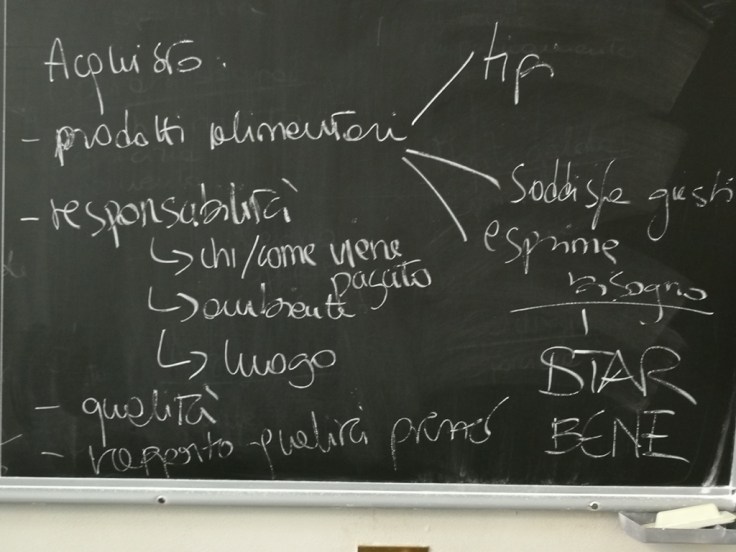 Acquisto:
- prodotti alimentari
tipo
soddisfa gusti
esprime
bisogno
STAR
BENE
- responsabilità
↳ chi/come viene
pagato
↳ ambiente
↳ luogo
- qualità
- rapporto qualità prezzo